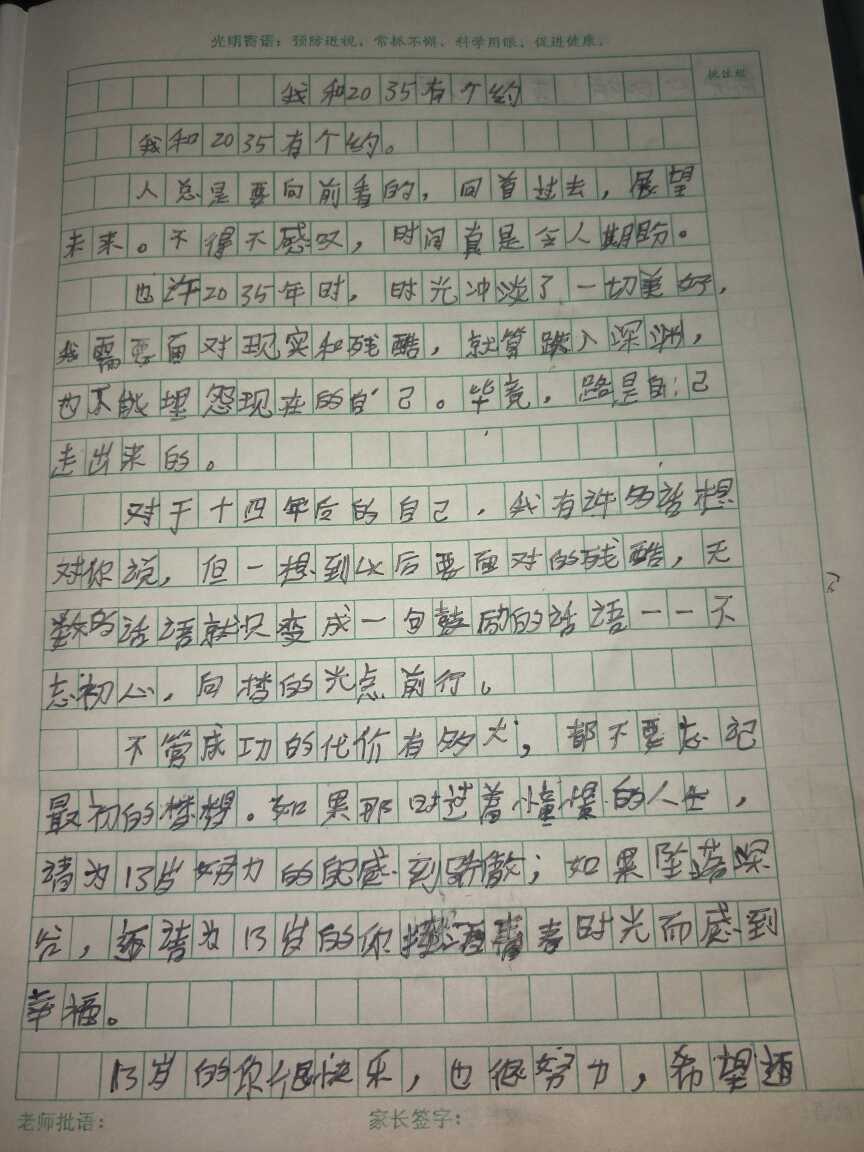 光明寄语：预防近视，常抓不懈，科学用眼，促进健康。
批注栏
我和2035有个约
我和2035有个约。
人总是要向前看的，回首过去，展望
未来。不得不感叹，时间真是令人期盼。
也许2035年时，时光冲淡了一切美好，
我需要面对现实和残酷，就算跌入深渊，
也不能埋怨现在的自己。毕竟，路是自己
走出来的。
对于十四年后的自己，我有许多话想
对你说，但一想到以后要面对的残酷，无
数的话语就只变成一句鼓励的话语一一不
忘初心，向梦的光点前行。
不管成功的代价有多大，都不要忘记
最初的梦想。如果那时过着憧憬的人生，
请为13岁努力的感到骄傲；如果坠落深
谷，请为13岁的你挥洒青春时光而感到
幸福。
13岁的你很快乐，也很努力，希望
老师批语：
家长签字：